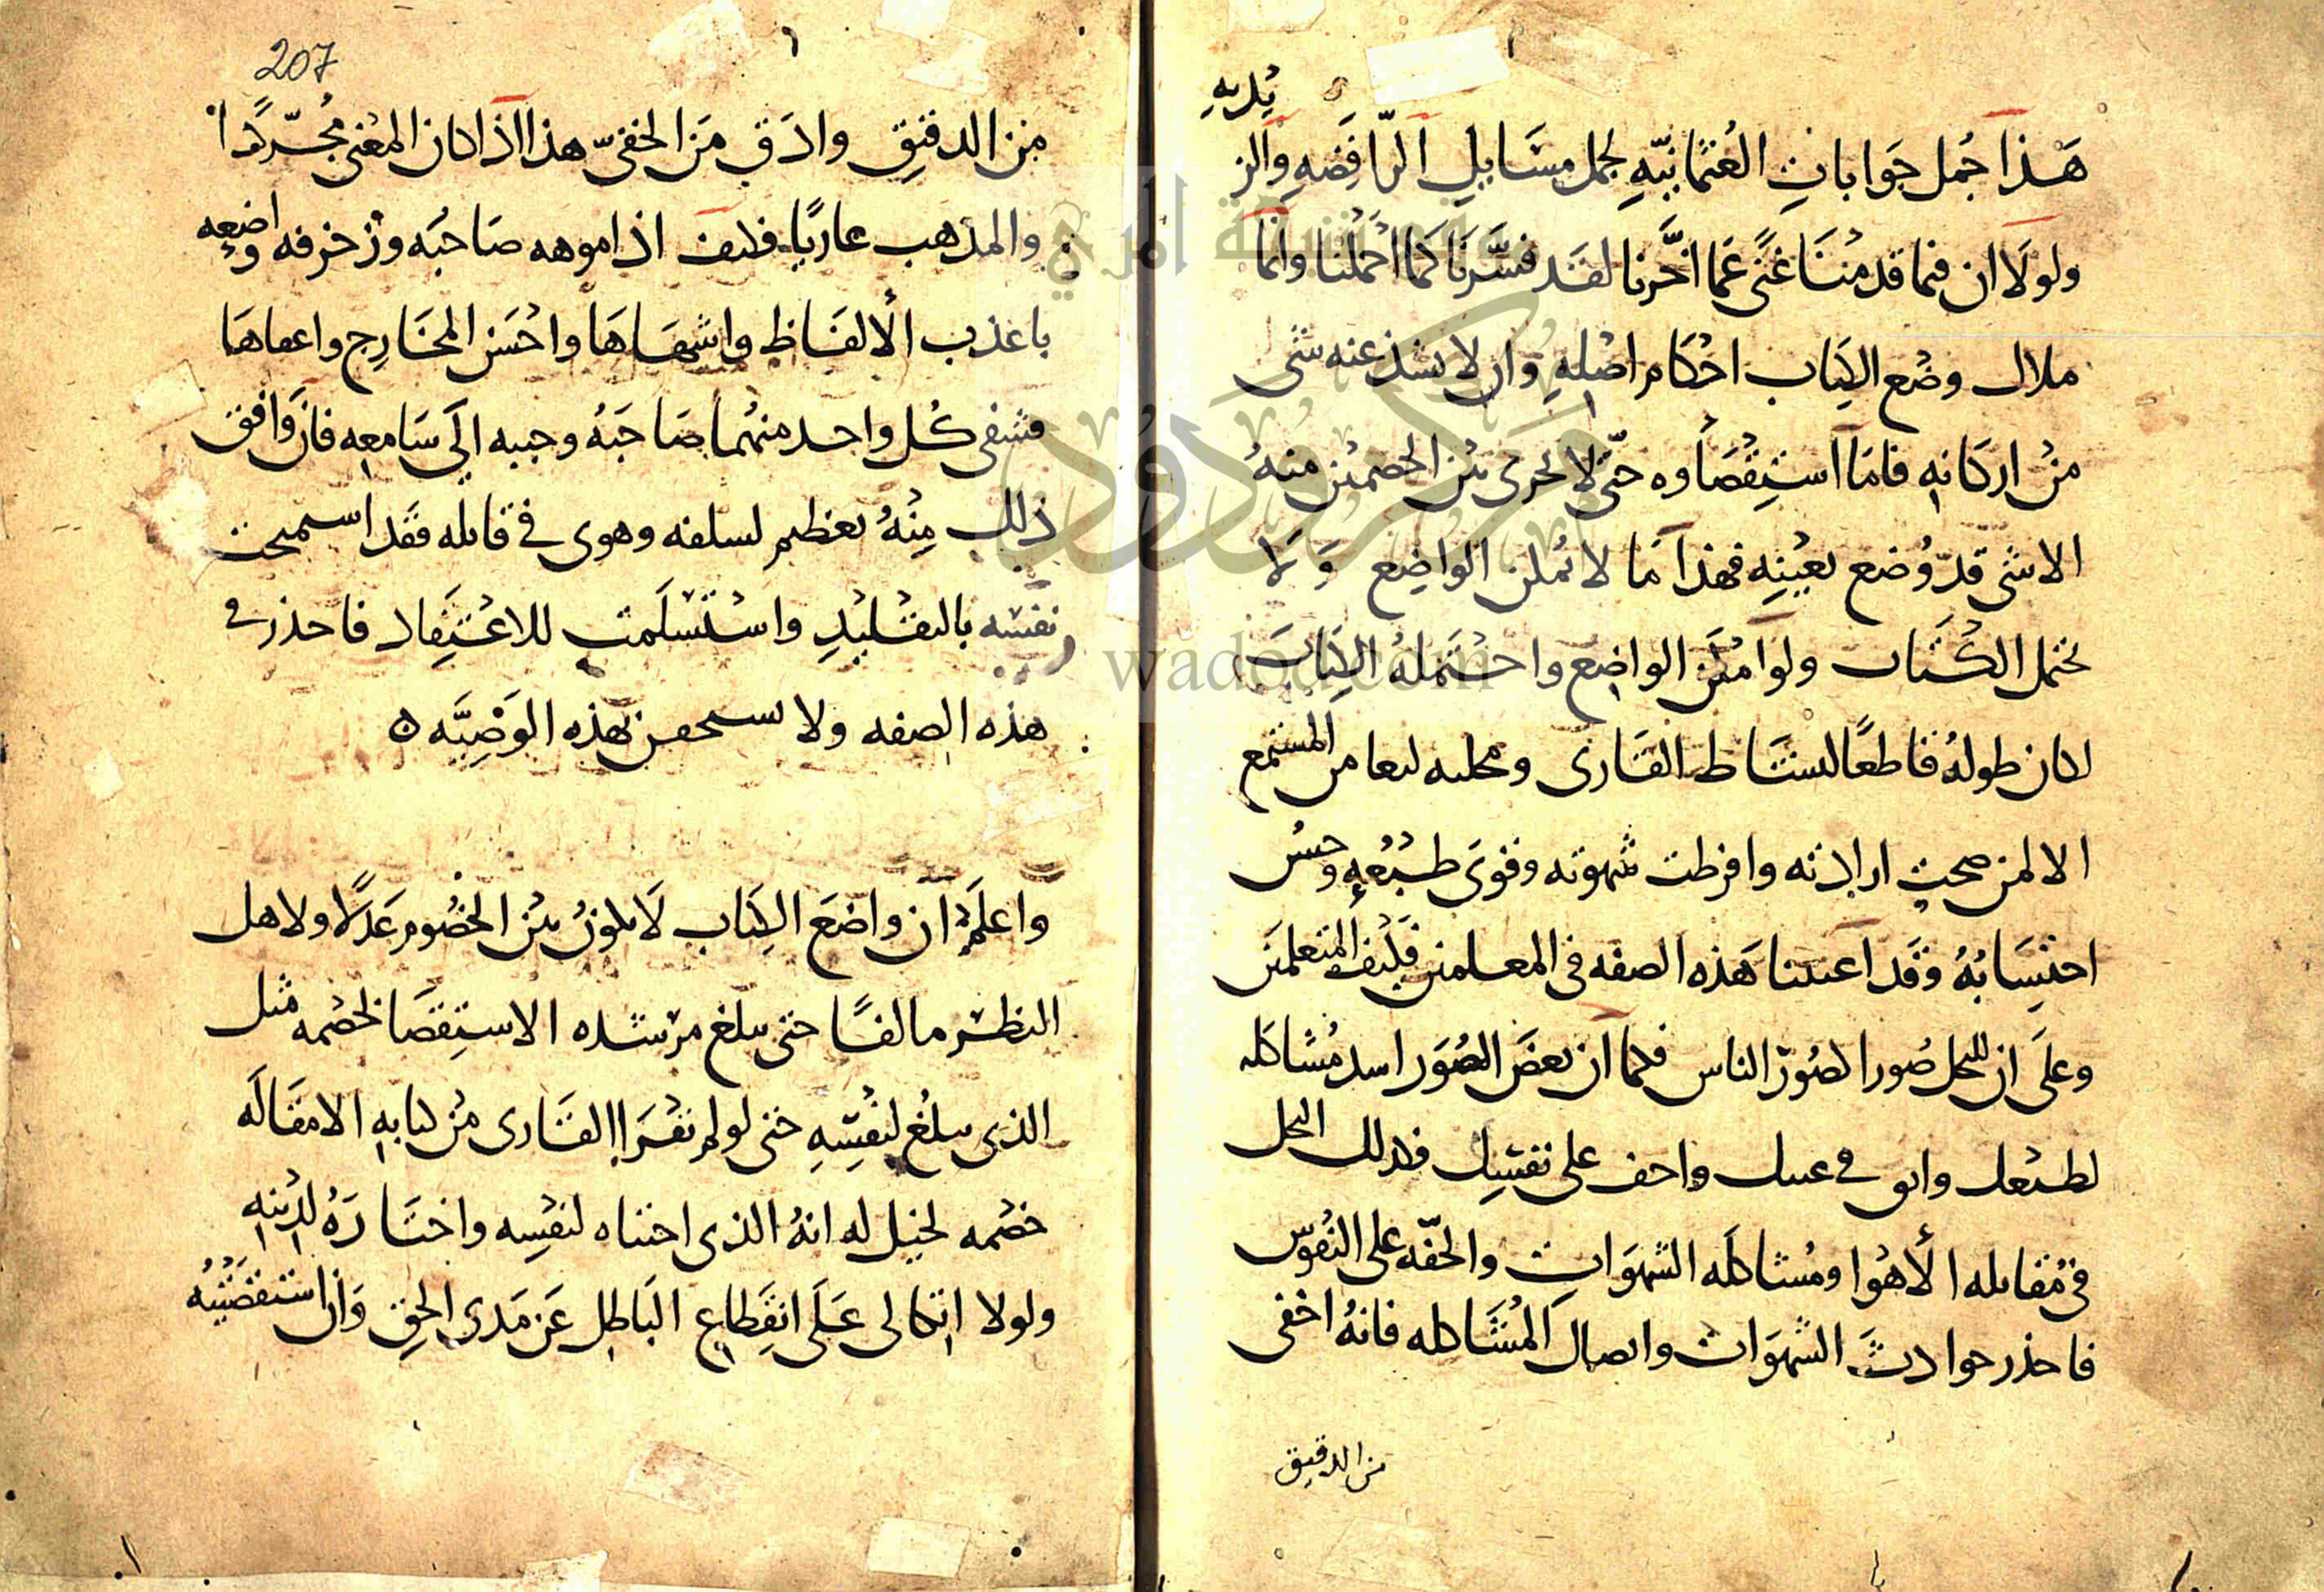 هَذا جُمل جَوَاباتِ العُثمانيّهِ لجمل مسَايلِ الرّافِضَهِ والزيديهِ
ولولَا ان فيما قدمنَا غنًى عَما اخَّرنا لفسَّرنَا كما اجملنا وانما
ملاك وضع الكِتاب احكام اصلهِ وان لا يشذ عنه شى
من اركانه فامَا استِقصَاوه حتّى لا يجرى بين الخصمين منهُ
الا شى قد وُضع بعينِه فهذا مَا لا يمكن الواضِع وَلَا
يحتمل الكتاب ولو امكن الواضِع واحتمَلهُ الكِتابَ
لكان طولهُ قاطعًا لنشاط القَارى ومجلبه لنعاس المستمع
الا لمن صحت ارادته وافرطت شهوته وقوى طبعهِ وحسن
احتِسَابُهُ وقد اعتدنا هَذه الصفه فى المعلمين فكَيفَ المتعلمين
وعلَى ان للنحل صُورا كصُور الناس فكما ان بعضَ الصُوَر اشد مُشاكله
لطبعك وانق فى عينك واخف على نفسِك فكذلك النحل
فى مُقابله الأهوا ومُشاكلَه الشهوَات والخفّه على النفُوس
فاحذر حوادثَ الشهوَات واتصال المُشَاكله فانهُ اخفى
من الدقيق
207
مِن الدقيقِ وادَق مَن الخفىّ هذا اذا كان المعْنى مُجَرَّدًا
والمذهب عاريًا فكيف اذا موهه صَاحبُه وزخرفه واضعِه
باعذب الألفاظ واشهاهَا واحسَن المخَارِج واعفاهَا
فشفى كُل واحد منهُما صَاحبَهُ وحببه الَى سَامعِه فان وَافق
ذلك مِنْهُ تعظيم لسلفه وهوى فى قايله فقَد اسمحت
نفسه بالتقليدِ واستسْلَمَت للاعتِقاد فاحذر فى
هذه الصفه ولا تستخفن بهذه الوَصِيَّه ه
واعلَم ان واضعَ الكِتاب لَا يكونُ بيْن الخصُوم عَدلًا ولا هل
النظر مالفًا حتى يبلغ من شده الاستِقصَا لخصمه مثل
الذى يبلغ لنفسِهِ حتى لو لم يقرَا القَارى من كتابهِ الا مقَالَه
خصْمه لخيل له انهُ الذى اجتباه لنفسِه واختَارَهُ لدينهِ
ولولا اتكالى عَلَى انقِطاع البَاطل عَن مَدى الحق وَان استقصَيتهُ